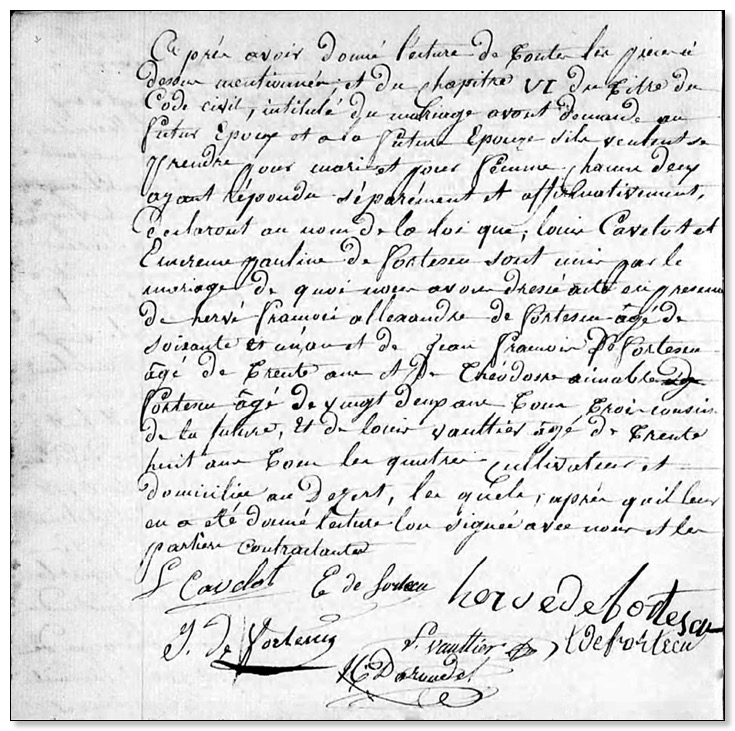 Après avoir donné lecture de toutes les pieces
dessus mentionnées, et du chapitre VI du titre du
Code civil, intitulé du mariage avont demandé au
futur Epoux et a la future Epouze s'ils veulent se
prendre pour mari et pour femme, chacun deux
ayant répondu séparément et affirmativement,
Déclaront au nom de la loi que, louis Cavelot et
pauline de Fortescu sont unis par le
mariage de quoi nous avons dressé acte en presence
de hervé francois allexandre de Fortescu âgé de
soixante et un an et de jean francois De Fortescu
âgé de trente ans et de Théodosse aimable de
Fortescu âgé de vingt deux ans tous trois cousins
de la future, et de louis vaultier âgé de trente
huit ans tous les quatres cultivateurs et
domiciliés au dezert, les quels, après quil leur
en a été donné lecture lon signée avec nous et les
parties contractantes
L Cavelot E de Fortescu herve de fortescu
J. de Fortescu L. vaultier t de fortescu